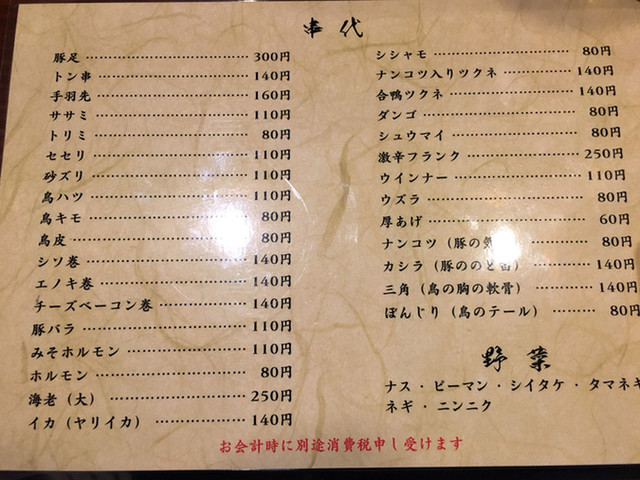 串代
豚足 300円
トン串 140円
手羽先 160円
ササミ 110円
トリミ 80円
セセリ 110円
砂ズリ 110円
鳥ハツ 110円
鳥キモ 80円
鳥皮 80円
シソ巻 140円
エノキ巻 140円
チーズベーコン巻 140円
豚バラ 110円
みそホルモン 110円
ホルモン 80円
海老（大） 250円
イカ（ヤリイカ） 140円
シシャモ 80円
ナンコツ入りツクネ 140円
合鴨ツクネ 140円
ダンゴ 80円
シュウマイ 80円
激辛フランク 250円
ウインナー 110円
ウズラ 80円
厚あげ 60円
ナンコツ（豚の 80円
カシラ（豚ののど 140円
三角（鳥の胸の軟骨） 140円
ぼんじり（鳥のテール） 80円
野菜
ナス・ピーマン・シイタケ・タマネギ
ネギ・ニンニク
お会計時に別途消費税申し受けます